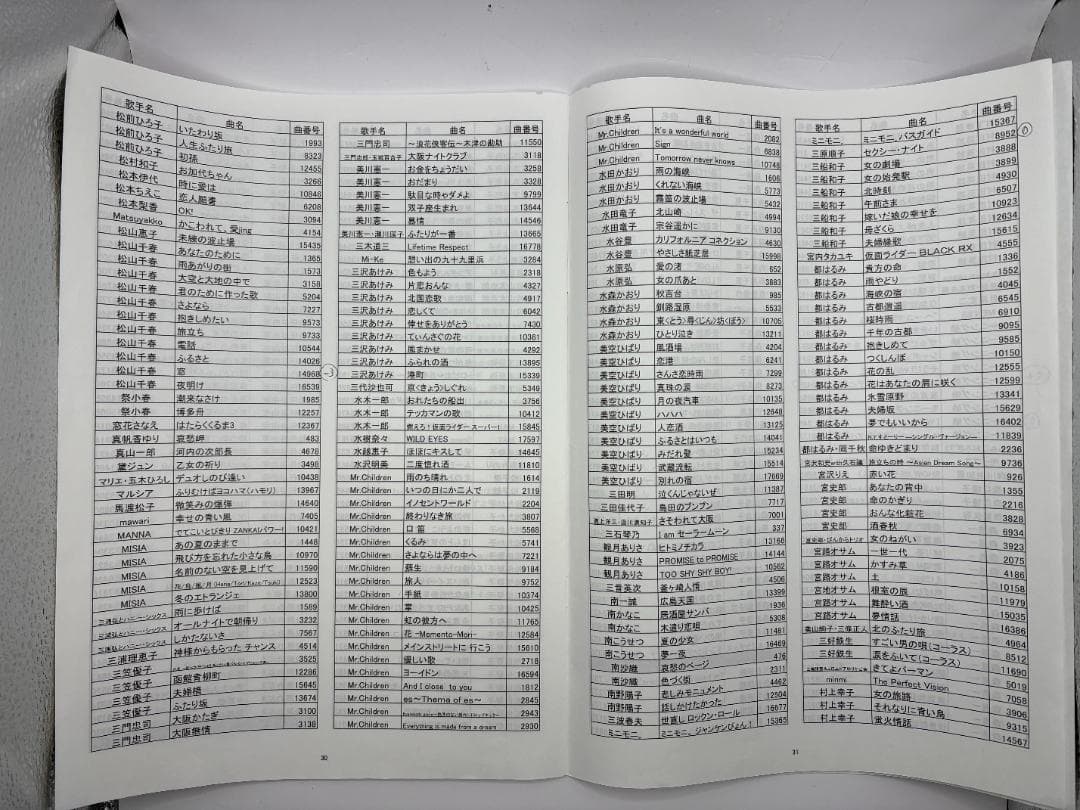 歌手名 曲名 曲番号
松前ひろ子 いたわり坂 1993
松前ひろ子 人生ふたり旅 8323
松前ひろ子 初孫 12455
松村和子 お加代ちゃん 3266
松本伊代 時に愛は 10846
松本ちえこ 恋人 6208
松本梨香 OK! 3094
Matsuyakko かこわれて、愛jing 4154
松山恵子 未練の波止場 15435
松山千春 あなたのために 1365
松山千春 雨あがりの街 1573
松山千春 大空と大地の中で 3158
松山千春 君のために作った歌 5204
松山千春 さよなら 7227
松山千春 抱きしめたい 9573
松山千春 旅立ち 9733
松山千春 電話 10544
松山千春 ふるさと 14026
松山千春 窓 14968
松山千春 夜明け 16539
祭小春 潮来なさけ 1985
祭小春 博多舟 12257
窓花さなえ はたらくくるま3 12367
真帆香ゆり 哀愁岬 483
真山一郎 河内の次郎長 4678
黛ジュン 乙女の祈り 3498
マリエ・五木ひろし デュオしのび逢い 10438
マルシア ふりむけばヨコハマ(ハモリ) 13967
馬渡松子 微笑みの爆弾 14640
mawari 幸せの青い風 7405
MANNA でてこいとびきり ZENKAIパワー! 10421
MISIA あの夏のままで 1448
MISIA 飛び方を忘れた小さな鳥 10970
MISIA 名前のない空を見上げて 11590
MISIA 花/鳥/風/月 (Hana/Tori/Kaze/Tsuki) 12523
MISIA 冬のエトランジェ 13800
三浦弘とハニー・シックス 雨に歩けば 1589
三浦弘とハニー・シックス オールナイトで朝帰り 3232
三浦弘とハニー・シックス しかたないさ 7567
三浦理恵子 神様からもらった チャンス 4514
三笠優子 3525
三笠優子 函館青柳町 12286
三笠優子 夫婦橋 15645
三笠優子 ふたり坂 13674
三門忠司 大阪かたぎ 3100
三門忠司 大阪無情 3138
30
歌手名 曲名 曲番号
三門忠司 ～浪花侠客伝～木津の勘助 11550
三門忠郎・五城百合子 大阪ナイトクラブ 3118
美川憲一 お金をちょうだい 3258
美川憲一 おだまり 3328
美川憲一 駄目な時ゃダメよ 9799
美川憲一 双子座生まれ 13644
美川憲一 慕情 14546
美川憲一・瀬川瑛子 ふたりが一番 13665
三木道三 Lifetime Respect 16778
Mi-Ke 想い出の九十九里浜 3284
三沢あけみ 色もよう 2318
三沢あけみ 片恋おんな 4327
三沢あけみ 北国恋歌 4917
三沢あけみ 恋しくて 6042
三沢あけみ 倖せをありがとう 7430
三沢あけみ てぃんさぐの花 10361
三沢あけみ 風まかせ 4292
三沢あけみ ふられの酒 13895
三沢あけみ 湊町 15339
三代沙也可 京(きょう)しぐれ 5349
水木一郎 おれたちの船出 3756
水木一郎 テッカマンの歌 10412
水木一郎 燃えろ!仮面ライダー スーパー1 15845
水樹奈々 WILD EYES 17597
水越恵子 ほほにキスして 14645
水沢明美 二度惚れ酒 11810
Mr.Children 雨のち晴れ 1614
Mr.Children いつの日にか二人で 2119
Mr.Children イノセントワールド 2204
Mr.Children 終わりなき旅 3807
Mr.Children 口笛 5568
Mr.Children くるみ 5741
Mr.Children さよならは夢の中へ 7221
Mr.Children 蘇生 9184
Mr.Children 旅人 9752
Mr.Children 手紙 10374
Mr.Children 掌 10425
Mr.Children 虹の彼方へ 11765
Mr.Children 花 -Momento-Mori- 12584
Mr.Children メインストリートに 行こう 15610
Mr.Children 優しい歌 2718
Mr.Children ヨーイドン 16594
Mr.Children And I close to you 1812
Mr.Children es～Thema of es～ 2845
Mr.Children 2943
Mr.Children Everything is made from a dream 2930
歌手名 曲名 曲番号
Mr.Children It's a wonderful world 2082
Mr.Children Sign 6838
Mr.Children Tomorrow never knows 10748
水田かおり 雨の海峡 1606
水田かおり くれない海峡 5773
水田かおり 霧笛の波止場 5432
水田竜子 北山崎 4994
水田竜子 宗谷遥かに 9130
水谷豊 カリフォルニア コネクション 4630
水谷豊 やさしさ紙芝居 15998
水原弘 愛の渚 652
水原弘 女の爪あと 3883
水森かおり 秋吉台 985
水森かおり 釧路湿原 5533
水森かおり 東(とう)尋(じん)坊(ぼう) 10705
水森かおり ひとり泣き 13211
美空ひばり 風酒場 4204
美空ひばり 恋港 6241
美空ひばり さんさ恋時雨 7299
美空ひばり 真珠の涙 8273
美空ひばり 月の夜汽車 13135
美空ひばり ハハハ 12648
美空ひばり 人恋酒 13125
美空ひばり ふるさとはいつも 14041
美空ひばり みだれ髪 15234
美空ひばり 武蔵流転 15514
美空ひばり 別れの宿 17669
三田明 泣くんじゃないぜ 11387
三田佳代子 島田のブンブン 7717
さそわれて大阪 7001
三石琴乃 I am セーラームーン 337
観月ありさ ヒトミノチカラ 13166
観月ありさ PROMISE to PROMISE 14144
観月ありさ TOO SHY SHY BOY! 10562
三音英次 釜ヶ崎人情 4506
南一誠 広島天国 13399
南かなこ 居酒屋サンバ 1936
南かなこ 木遣り恋唄 5308
南こうせつ 夏の少女 11481
南こうせつ 夢一夜 16469
南沙織 哀愁のページ 476
南沙織 色づく街 2311
南野陽子 悲しみモニュメント 4462
南野陽子 話しかけたかった 12504
三波春夫 世直しロックン・ロール 16077
ミニモニ。 ミニモニ。ジャンケンぴょん! 15365
31
歌手名 曲名 曲番号
ミニモニ。 ミニモニ。バスガイド 15367
三原順子 セクシー・ナイト 8952
三船和子 女の劇場 3888
三船和子 女の始発駅 3899
三船和子 北時刻 4930
三船和子 午前さま 6507
三船和子 嫁いだ娘の幸せを 10923
三船和子 母ざくら 12634
三船和子 夫婦縁歌 15615
宮内タカユキ 仮面ライダー BLACK RX 4555
都はるみ 貴方の命 1336
都はるみ 雨やどり 1552
都はるみ 海峡の宿 4045
都はるみ 古都逍遥 6545
都はるみ 桜時雨 6910
都はるみ 千年の古都 9095
都はるみ 抱きしめて 9585
都はるみ つくしんぼ 10150
都はるみ 花の乱 12555
都はるみ 花はあなたの肩に咲く 12599
都はるみ 氷雪原野 13341
都はるみ 夫婦坂 15629
都はるみ 夢でもいいから 16402
都はるみ ―シングル・ヴァージョン― 11839
都はるみ・岡千秋 命ゆきどまり 2236
宮沢和史with久石譲 旅立ちの時 ～Asian Dream Song～ 9736
宮沢りえ 赤い花 926
宮史郎 あなたの背中 1355
宮史郎 命のかぎり 2216
宮史郎 おんな化粧花 3828
宮史郎 酒春秋 6934
宮史郎・ぴんからトリオ 女のねがい 3923
宮路オサム 一世一代 2075
宮路オサム かすみ草 4186
宮路オサム 土 10158
宮路オサム 根室の旅 11979
宮路オサム 舞酔い酒 15035
宮路オサム 夢情話 16386
北のふたり旅 4964
三好鉄生 すごい男の唄(コーラス) 8512
三好鉄生 涙をふいて(コーラス) 11690
きてよパーマン 5019
minmi The Perfect Vision 7058
村上幸子 女の旅路 3906
村上幸子 それなりに青い鳥 9315
村上幸子 蛍火情話 14567